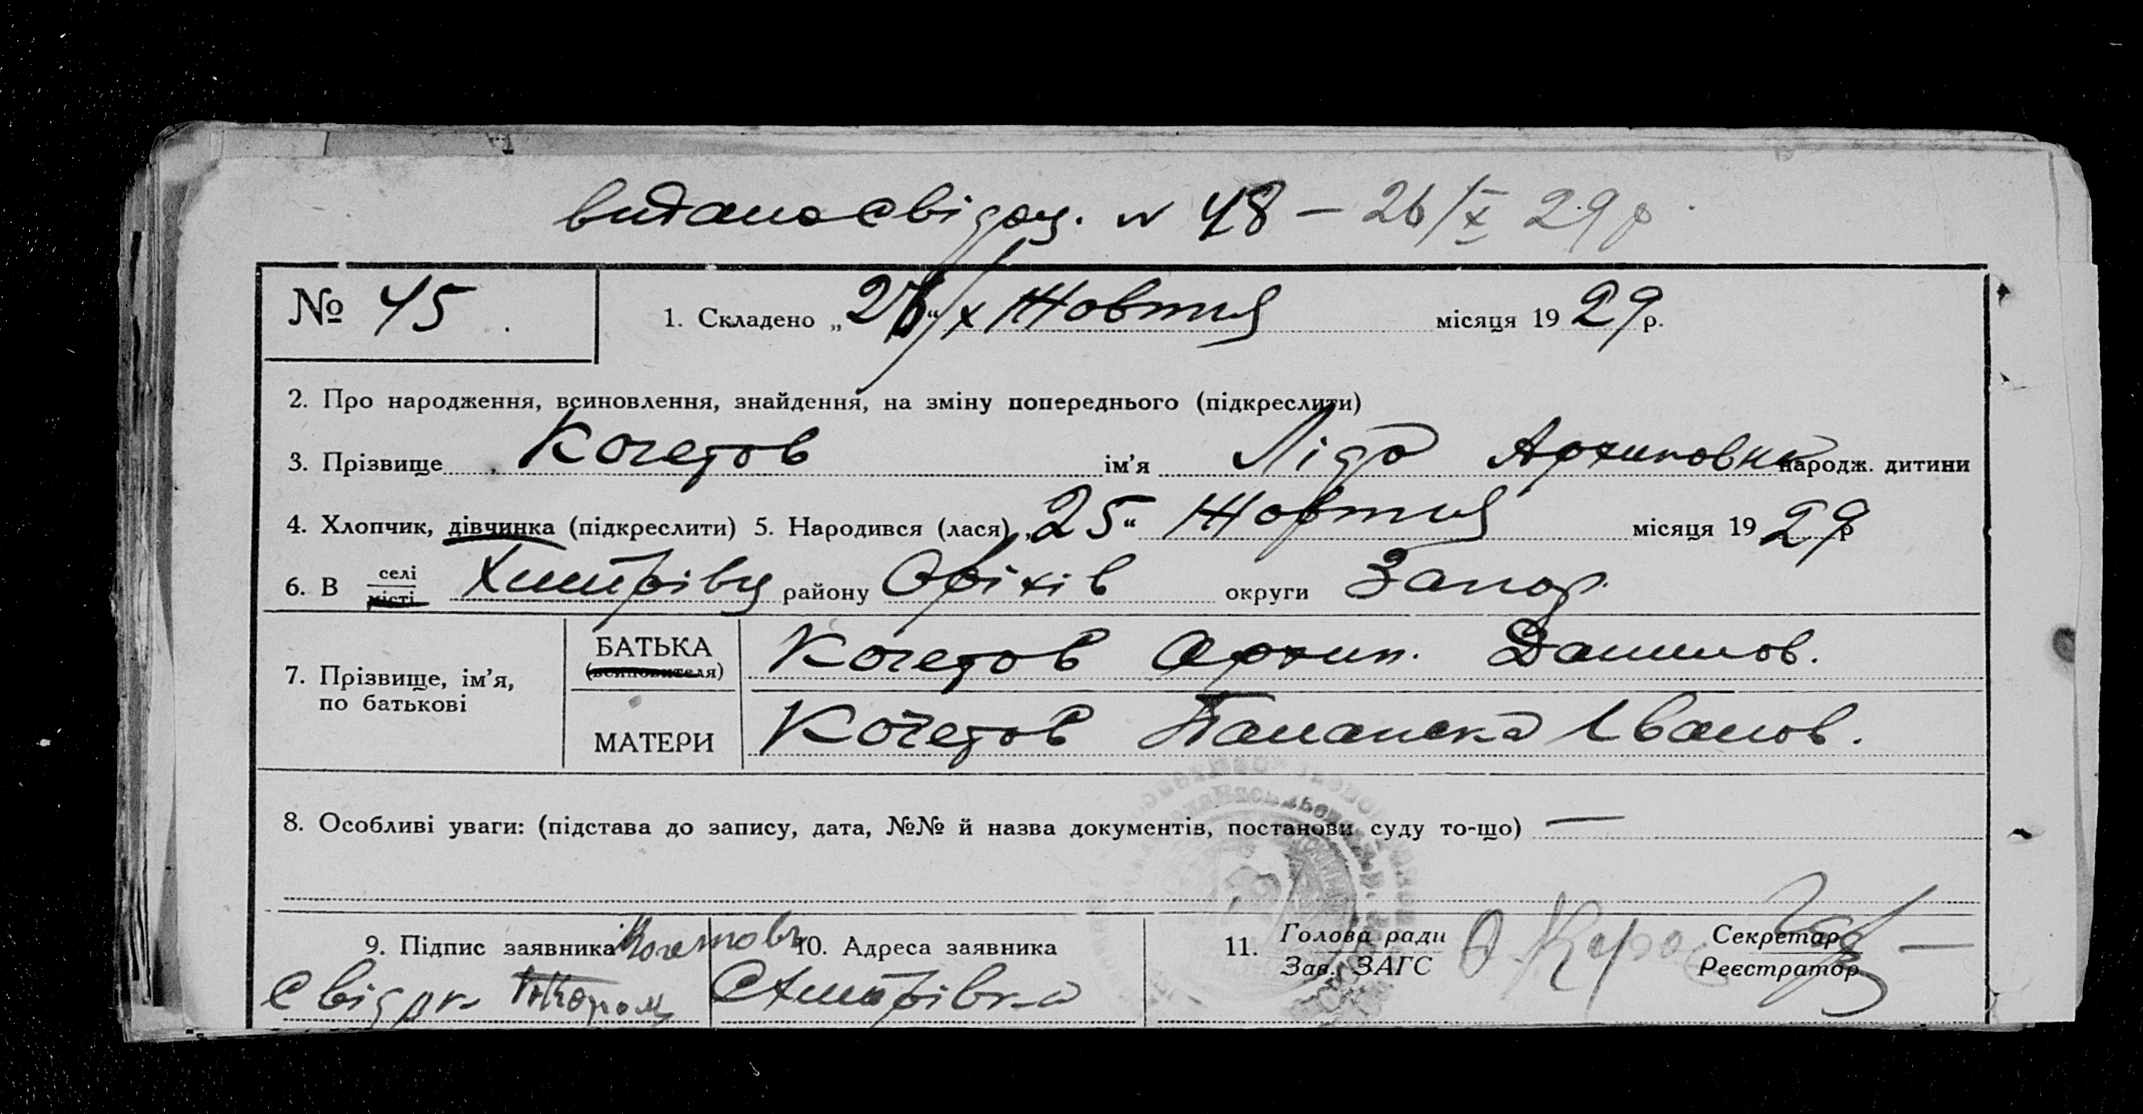 видано свідоц. N 48 – 26/X 29 р.
№ 45. 1. Складено „26“/X Жовтня місяця 1929 р.
2. Про народження, всиновлення, знайдення, на зміну попереднього (підкреслити)
3. Прізвище Кочетов ім’я Ліда Архиповна народж. дитини
4. Хлопчик, дівчинка (підкреслити) 5. Народився (лася) „25“ Жовтня місяця 1929 р
6. В селі
місті
району Оріхів округи Запор.
7. Прізвище, ім’я,
по батькові
БАТЬКА
(всиновителя)
Кочетов Архип. Данилов.
МАТЕРИ
Кочетов Паланска Іванов.
8. Особливі уваги: (підстава до запису, дата, №№ й назва документів, постанови суду то-що) —
9. Підпис заявника Кочетовъ
свідок
10. Адреса заявника
11. Голова ради
Зав. ЗАГС
Секретар
Реєстратор